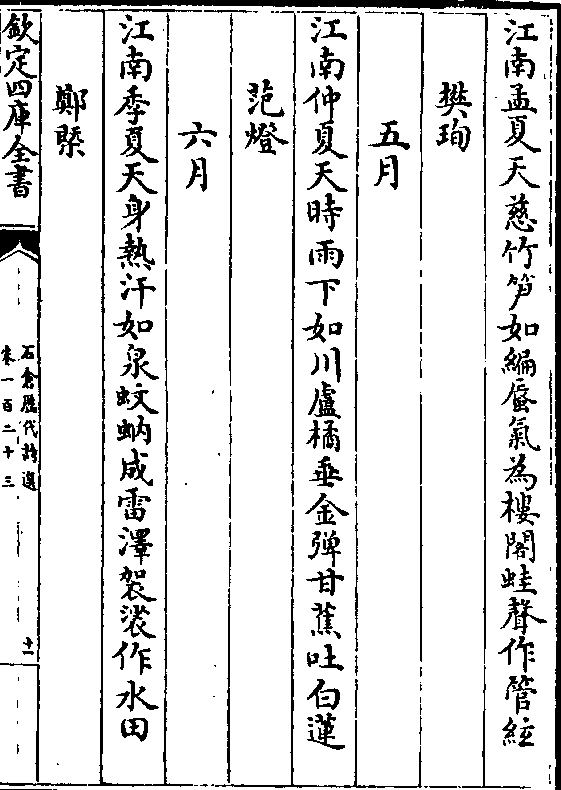 江南孟夏天慈竹笋如編蜃氣為樓閣蛙聲作管絃
樊珣
五月
江南仲夏天時雨下如川盧橘垂金彈甘蕉吐白蓮
范燈
六月
江南季夏天身熱汗如泉蚊蚋成雷澤袈裟作水田
鄭槩
欽定四庫全書
石倉歷代詩選
卷一百二十三
十一